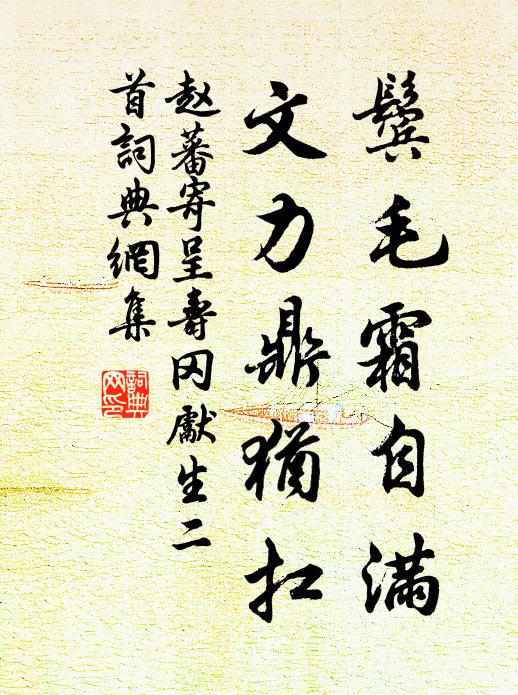 鬓毛霜自满
文力鼎犹扛
赵蕃寄呈寿冈献生二
首词典网集
词典网印